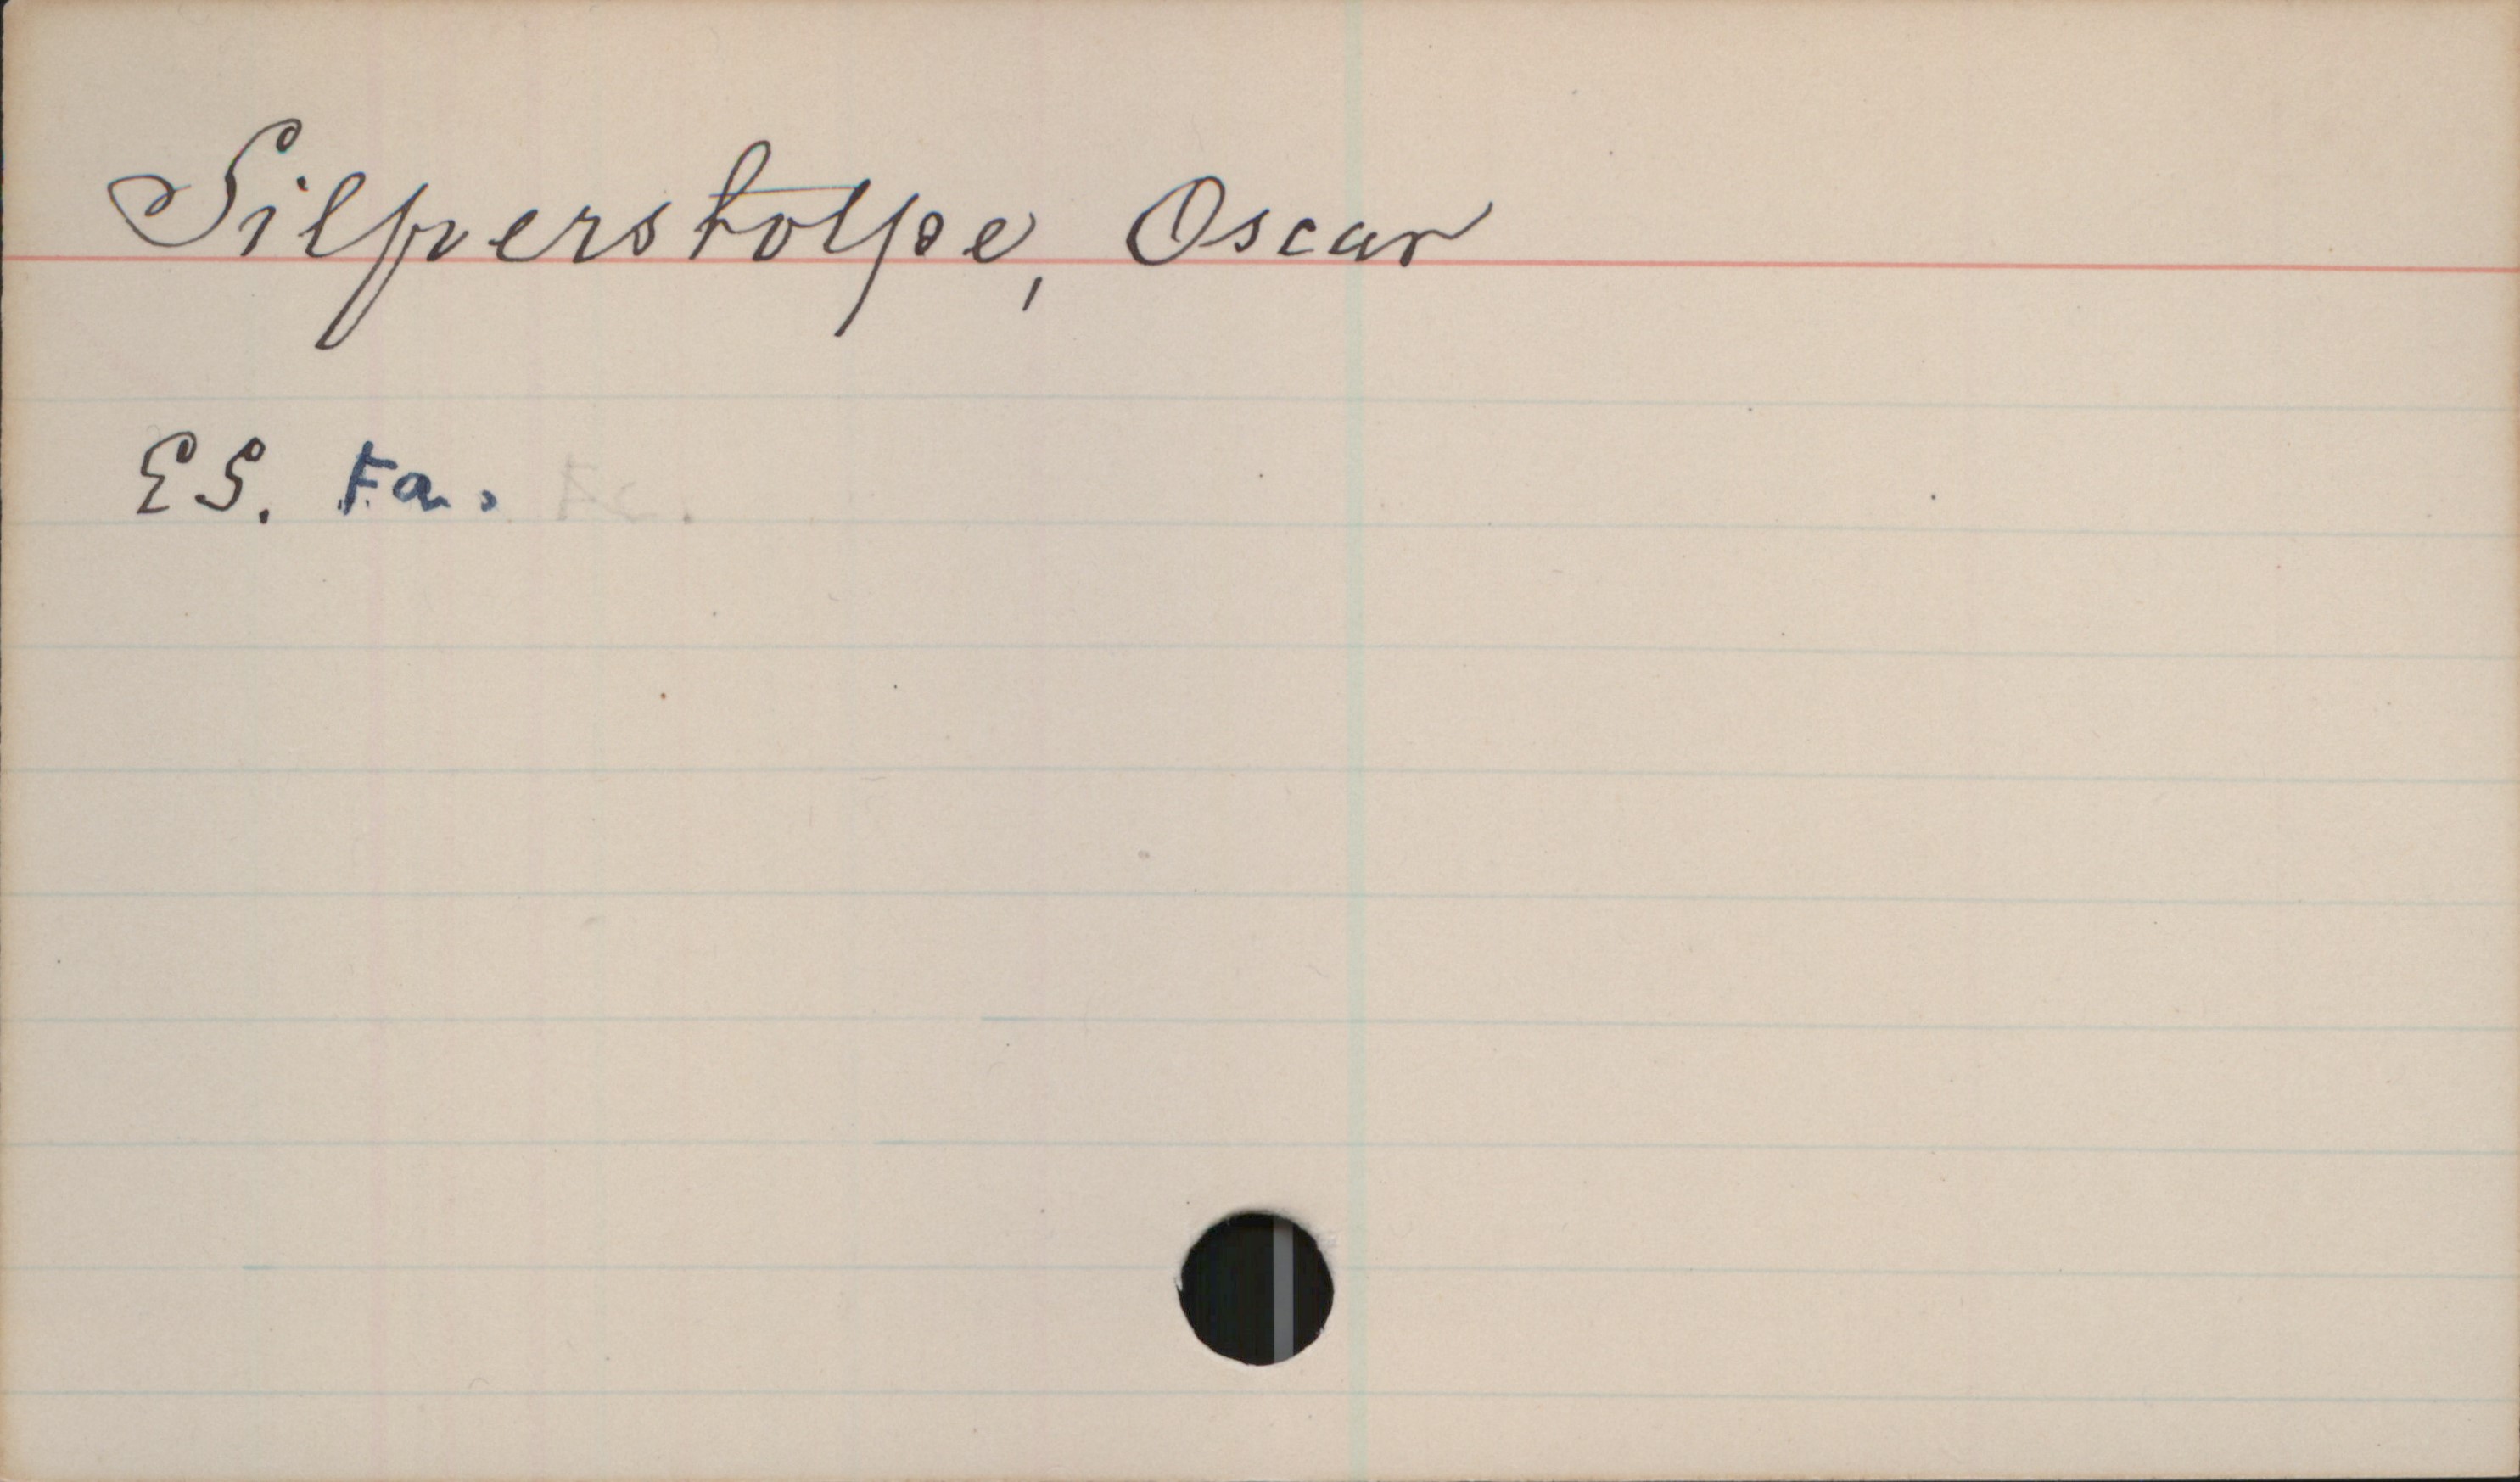 Silfverstolpe, Oscar
ES. Fa.